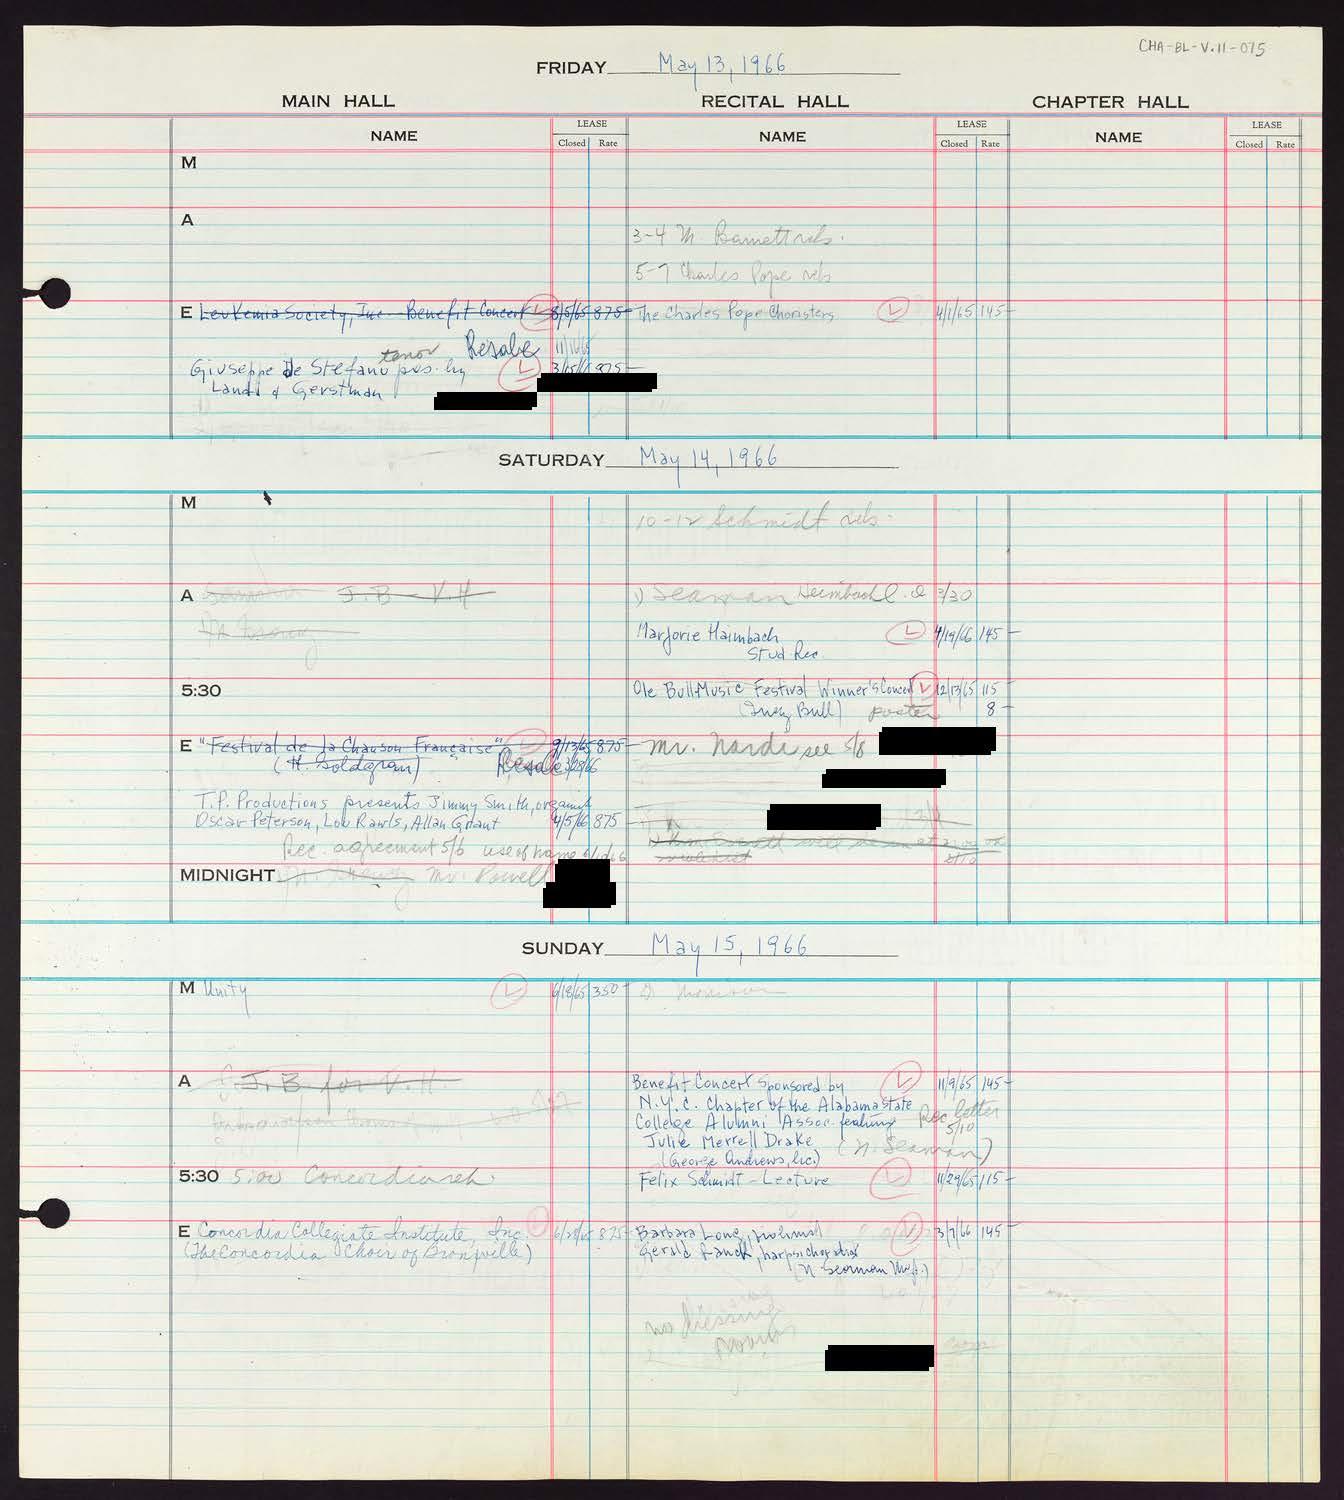 CHA-BL-V.11-075
FRIDAY May 13, 1966
MAIN HALL RECITAL HALL CHAPTER HALL
NAME LEASE NAME LEASE NAME LEASE
Closed Rate Closed Rate Closed Rate
M
A
3-4 M. Barnett reh.
5-7 Charles Pope reh
E Leukemia Society, Inc. Benefit Concert 8/5/65 875- The Charles Pope Choristers 4/1/65 145-
Resale 11/1/65
tenor
Giuseppe de Stefano pres. by
Landi & Gerstman
SATURDAY May 14, 1966
M
10-12 Schmidt reh.
A J.B - V.H 1) Seaman Heimbach 3/30
Marjorie Haimbach 4/19/66 145-
Stud. Rec.
5:30 Ole Bull Music Festival Winner's Concert 12/13/65 115-
(Inez Bull) poster 8-
E "Festival de la Chanson Française" 9/13/65 875- Mr. Nardi see 5/8
(H. Goldgran) Resale 3/28/66
T.P. Productions presents Jimmy Smith, organist
Oscar Peterson, Lou Rawls, Allan Grant 4/5/66 875-
Rec. agreement 5/6 use of name
MIDNIGHT Mr. Powell
SUNDAY May 15, 1966
M Unity 6/18/65 350- Morrison
A J.B for V.H Benefit Concert Sponsored by 11/9/65 145-
N.Y.C. Chapter of the Alabama State
College Alumni Assoc. featuring Rec. letter
5/10
Julie Merrell Drake (N. Seaman)
(George Andrews, lic.)
5:30 5:00 Concordia reh. Felix Schmidt - Lecture 11/29/65 115-
E Concordia Collegiate Institute, Inc. 875- Barbara Long, violinist 3/7/66 145-
(The Concordia Choir of Bronxville) Gerald Ranck, harpsichordist
(N. Seaman Mgt.)
no dressing
room